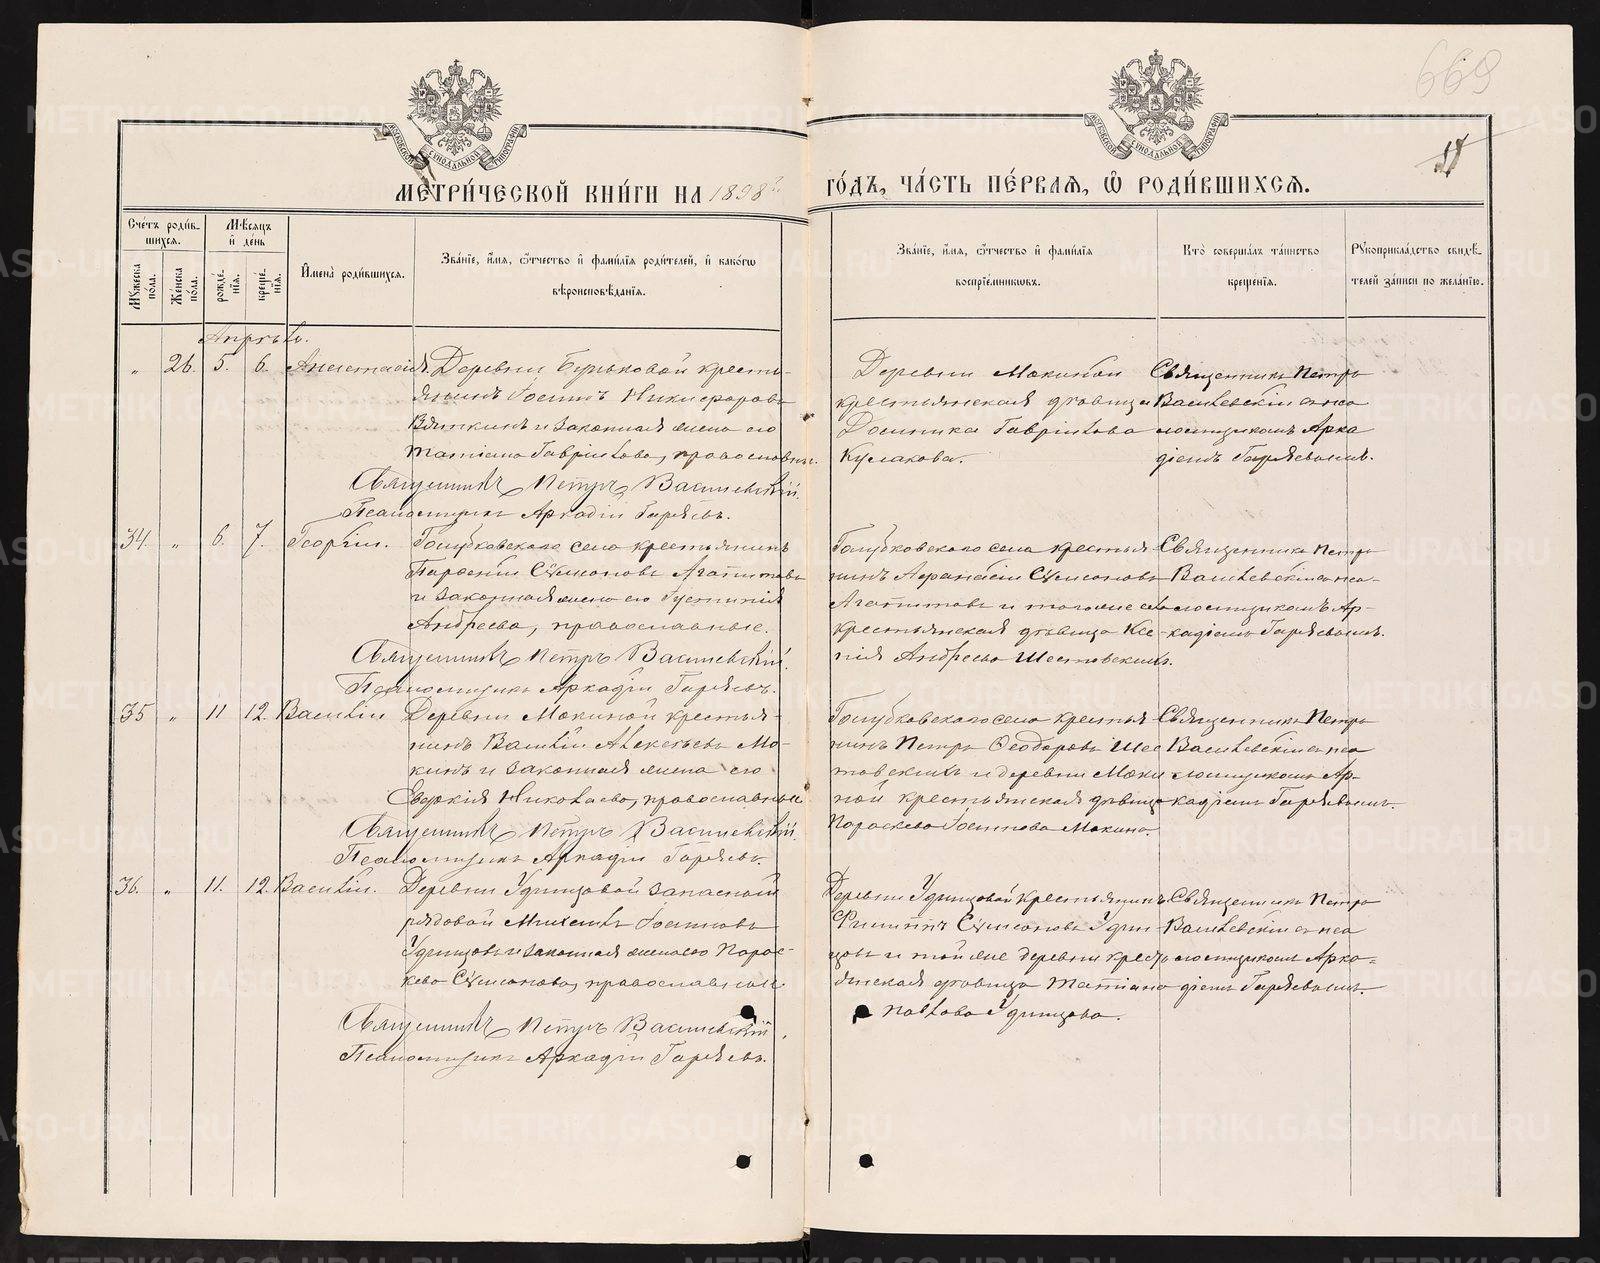 669
МОСКОВСКОЙ СѴНОДАЛЬНОЙ ТИПОГРАФІИ
МОСКОВСКОЙ СѴНОДАЛЬНОЙ ТИПОГРАФІИ
МЕТРИ́ЧЕСКОЙ КНИ́ГИ НА 1898 г.
ГО́ДЪ, ЧА́СТЬ ПЕ́РВАѦ, Ѡ҆ РОДИ́ВШИХСѦ.
Сче́тъ роди́в-
шихсѧ.
Мꙋ́жеска по́ла.
Же́нска по́ла.
Мѣ́сѧцъ и҆ де́нь
рожде́-
нїѧ.
креще́-
нїѧ.
И҆мена̀ роди́вшихсѧ.
Зва́нїе, и҆́мѧ, ѻ҆́тчество и҆ фами́лїѧ роди́телей, и҆ како́гѡ
вѣроисповѣ́данїѧ.
Зва́нїе, и҆́мѧ, ѻ҆́тчество и҆ фами́лїѧ
воспрїе́мникѡвъ.
Кто̀ соверша́лъ та́инство
креще́нїѧ.
Рꙋкоприкла́дство свидѣ́-
телей за́писи по жела́нїю.
Апрѣль.
„ 26. 5. 6. Анастасія. Деревни Бунь­ковой кресть-
янинъ Іосифъ Никифоровъ
Вяткинъ и законная жена его
Татіана Гаврилова, православные.
Священникъ Петръ Василевскій.
Псаломщикъ Аркадій Гаряевъ.
Деревни Мокиной
крестьянская дѣвица
Домника Гаврилова
Кулакова.
Священникъ Петръ
Василевскій съ пса
ломщикомъ Арка
діемъ Гаряевымъ.
34. „ 6. 7. Георгій. Голубковскаго села крестьянинъ
Парѳеній Сѵмеоновъ Агапитовъ
и законная жена его Іустинія
Андреева, православные.
Священникъ Петръ Василевскій.
Псаломщикъ Аркадій Гаряевъ.
Голубковскаго села крестья
нинъ Аѳанасій Сѵмеоновъ
Агапитовъ и того же села
крестьянская дѣвица Ксе
нія Андреева Шестовскихъ.
Священникъ Петръ
Василевскій съ пса-
ломщикомъ Ар-
кадіемъ Гаряевымъ.
35 „ 11 12. Василій Деревни Мокиной крестья-
нинъ Василій Алексѣевъ Мо-
кинъ и законная жена его
Евдокія Николаева, православные
Священникъ Петръ Василевскій.
Псаломщикъ Аркадій Гаряевъ.
Голубковскаго села крестья
нинъ Петръ Ѳеодоровъ Шес
товскихъ и деревни Моки
ной крестьянская дѣвица
Параскева Іосифова Мокина.
Священникъ Петръ
Василевскій съ пса
ломщикомъ Ар-
кадіемъ Гаряевымъ.
36. „ 11. 12. Василій. Деревни Удинцовой запасной
рядовой Михаилъ Іосифовъ
Удинцовъ и законная жена его Парас-
кева Сѵмеонова, православные.
Священникъ Петръ Василевскій.
Псаломщикъ Аркадій Гаряевъ.
Деревни Удинцовой крестьянинъ
Филиппъ Сѵмеоновъ Удин
цовъ и той же деревни кресть
янская дѣвица Татіана
Павлова Удинцова.
Священникъ Петръ
Василевскій съ пса
ломщикомъ Арка-
діемъ Гаряевымъ.
METRIKI.GASO-URAL.RU